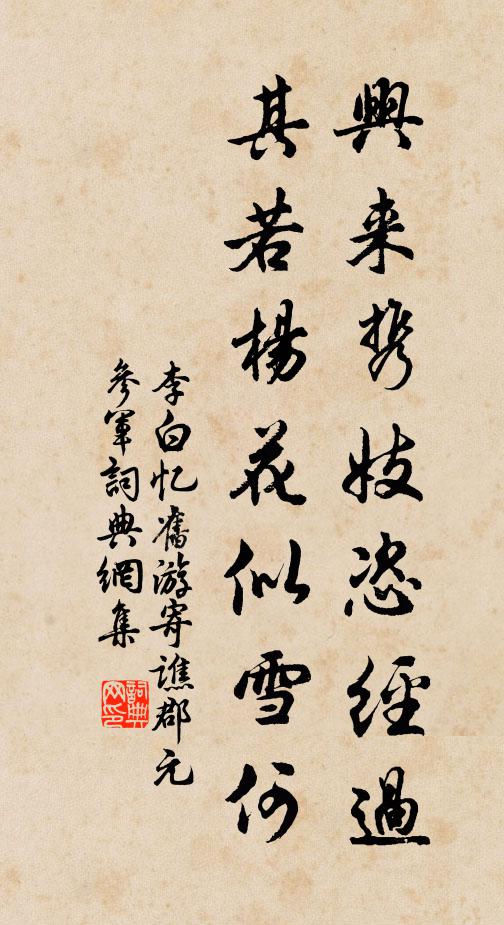 興来携妓恣經過
其若楊花似雪何
李白忆舊游寄譙郡元
參軍詞典網集
詞典
网印